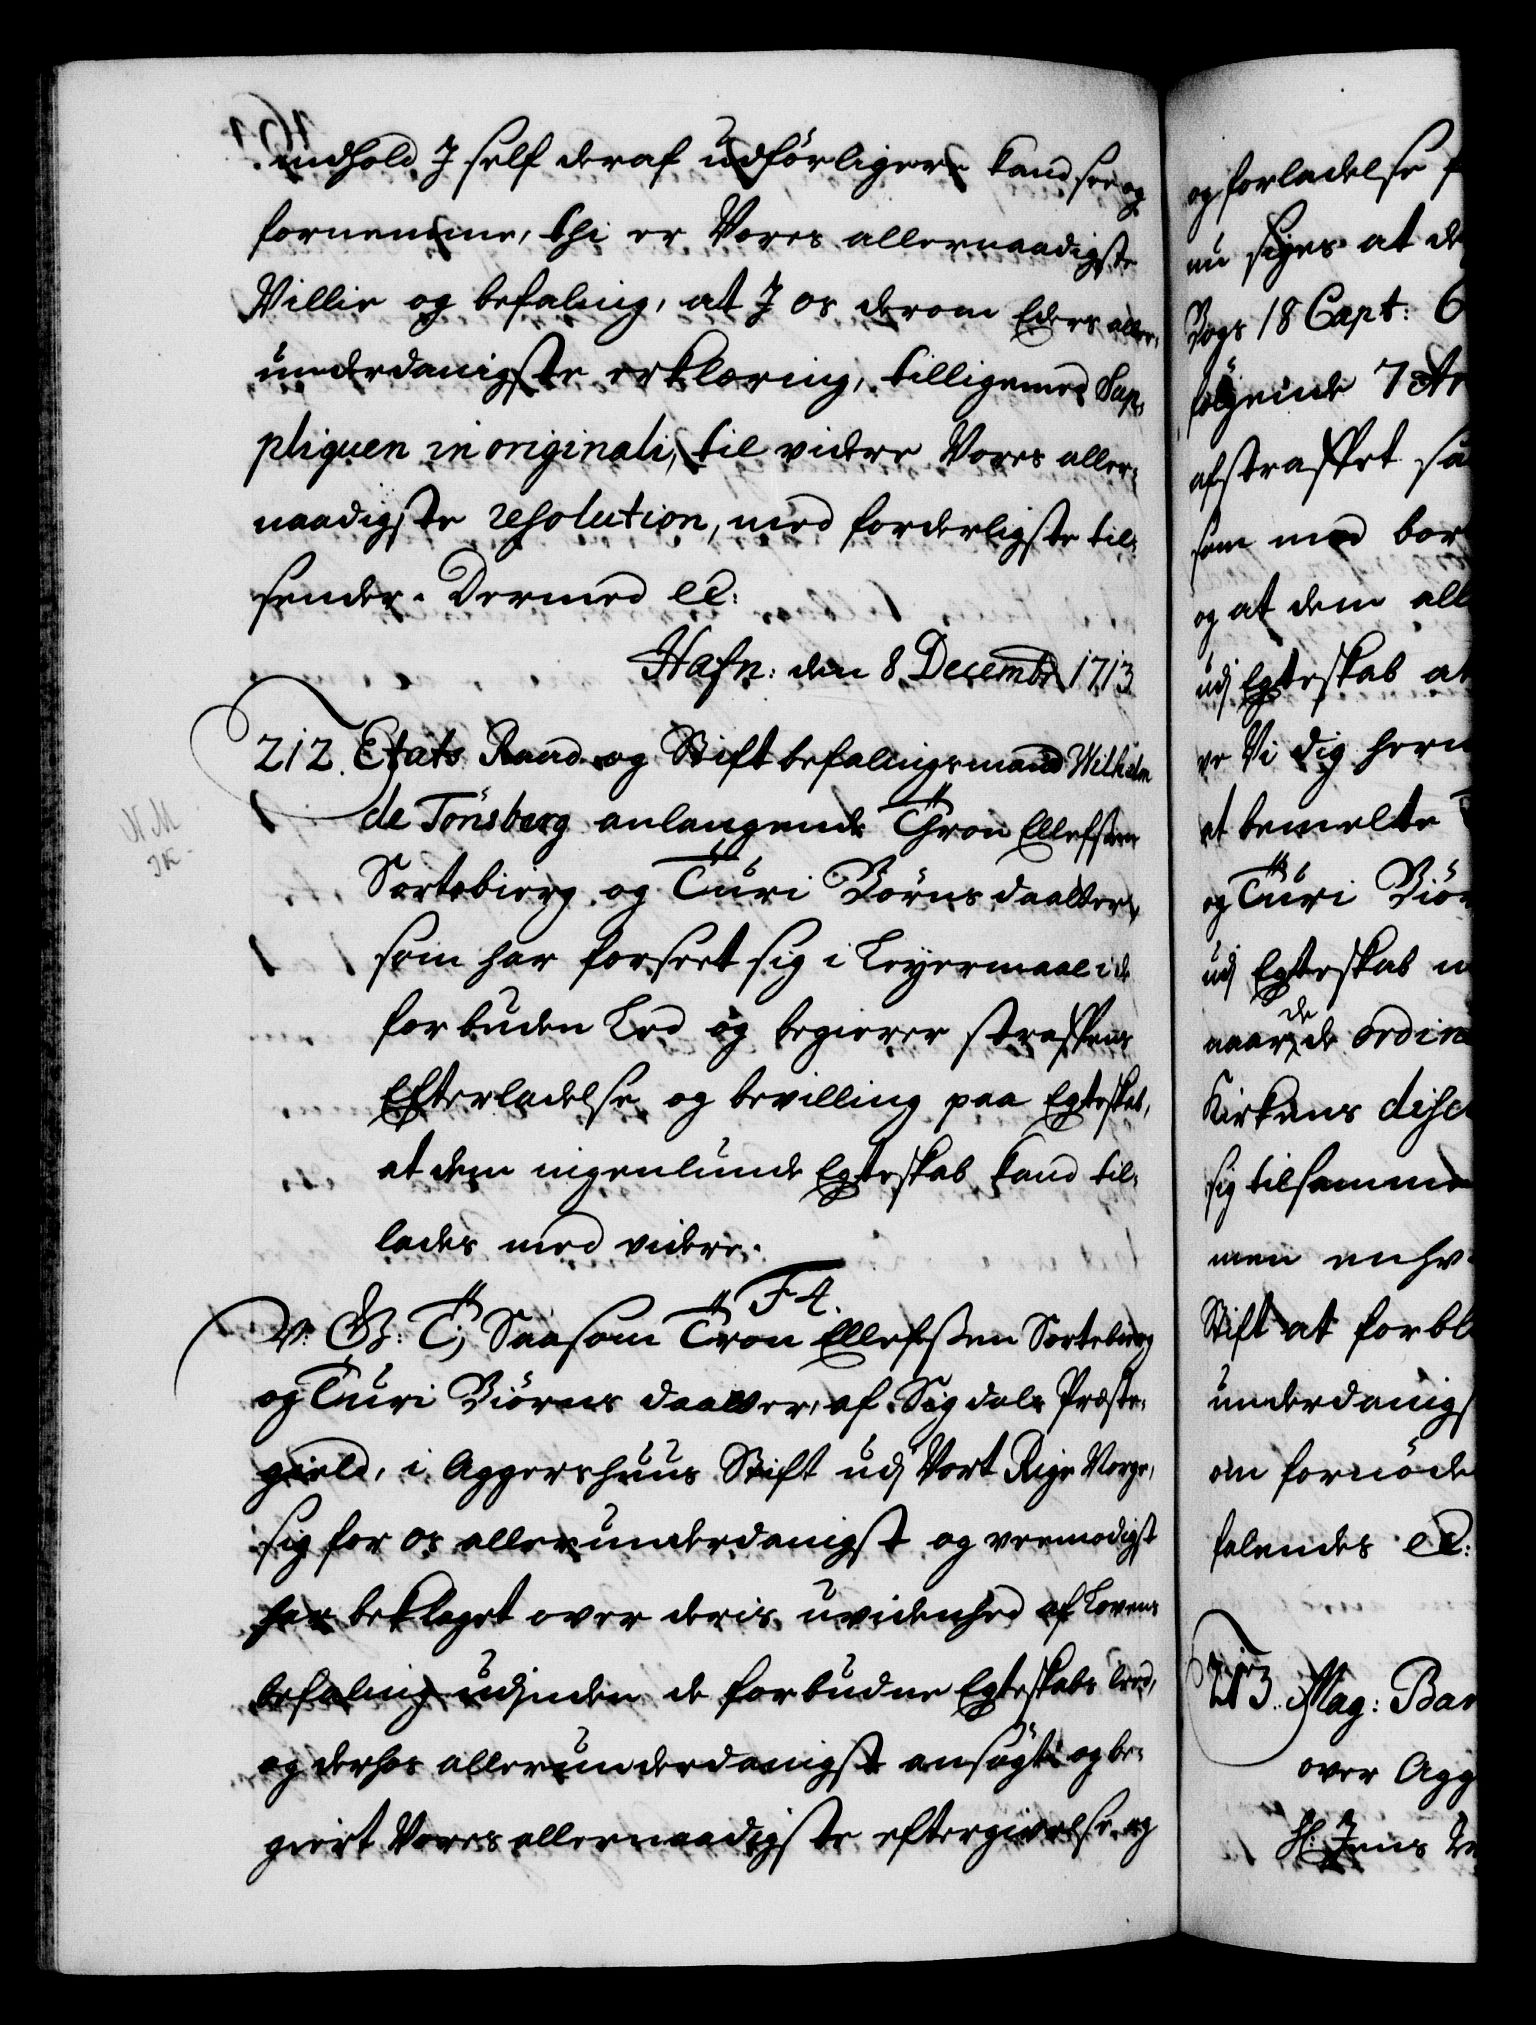 indhold I self deraf udförligere kand see og
fornemme, thi er Vores allernaadigste
Villie og befaling, at I os derom Eders aller,
underdanigste erklæring, tilligemed Sup,
pliquen in originali, til videre Vores aller,
naadigste resolution, med forderligste til,
sender. Dermed etc:
Hafn: den 8 Decembr 1713
212. Etats Raad og Stift befalingsmand Wilhelm
de Tönsberg anlangende Thron Ellefssen
Sortebierg og Turi Börns daatter,
som har forseet sig i Leyermaal i de
forbuden Led og begierer straffens
Efterladelse og bevilling paa Egteskab,
at dem ingenlunde Egteskab kand til,
lades med videre.
F 4.
V. G: T; Saasom Tron Ellefssen Sortebierg
og Turi Biörns daatter, af Sigdals Præste,
gield, i Aggershuus Stift udj Vort Rige Norge,
sig for os allerunderdanigst og veemodigst
har beklaget over deris uvidenhed af Lovens
befaling udjnden de forbudne Egteskabs Leed,
og derhos allerunderdanigst ansögt og be,
giert Vores allernaadigste eftergivelse og
N M
og forladelse
nu siges at de
Bogs 18 Capt: 6
fölgende 7 Ar
afstraffet saa
som med bor
og at dem all
udj Egteskab at
er Vi dig hern
at bemelte
og Turi Biör
udj Egteskab
naar de de ordin
Kirkens disc
sig tilsammen
men enhv
Stift at forbl
underdanigs
om fornöde
falendes etc:
213. Mag: Bar
over Agg
H: Jens